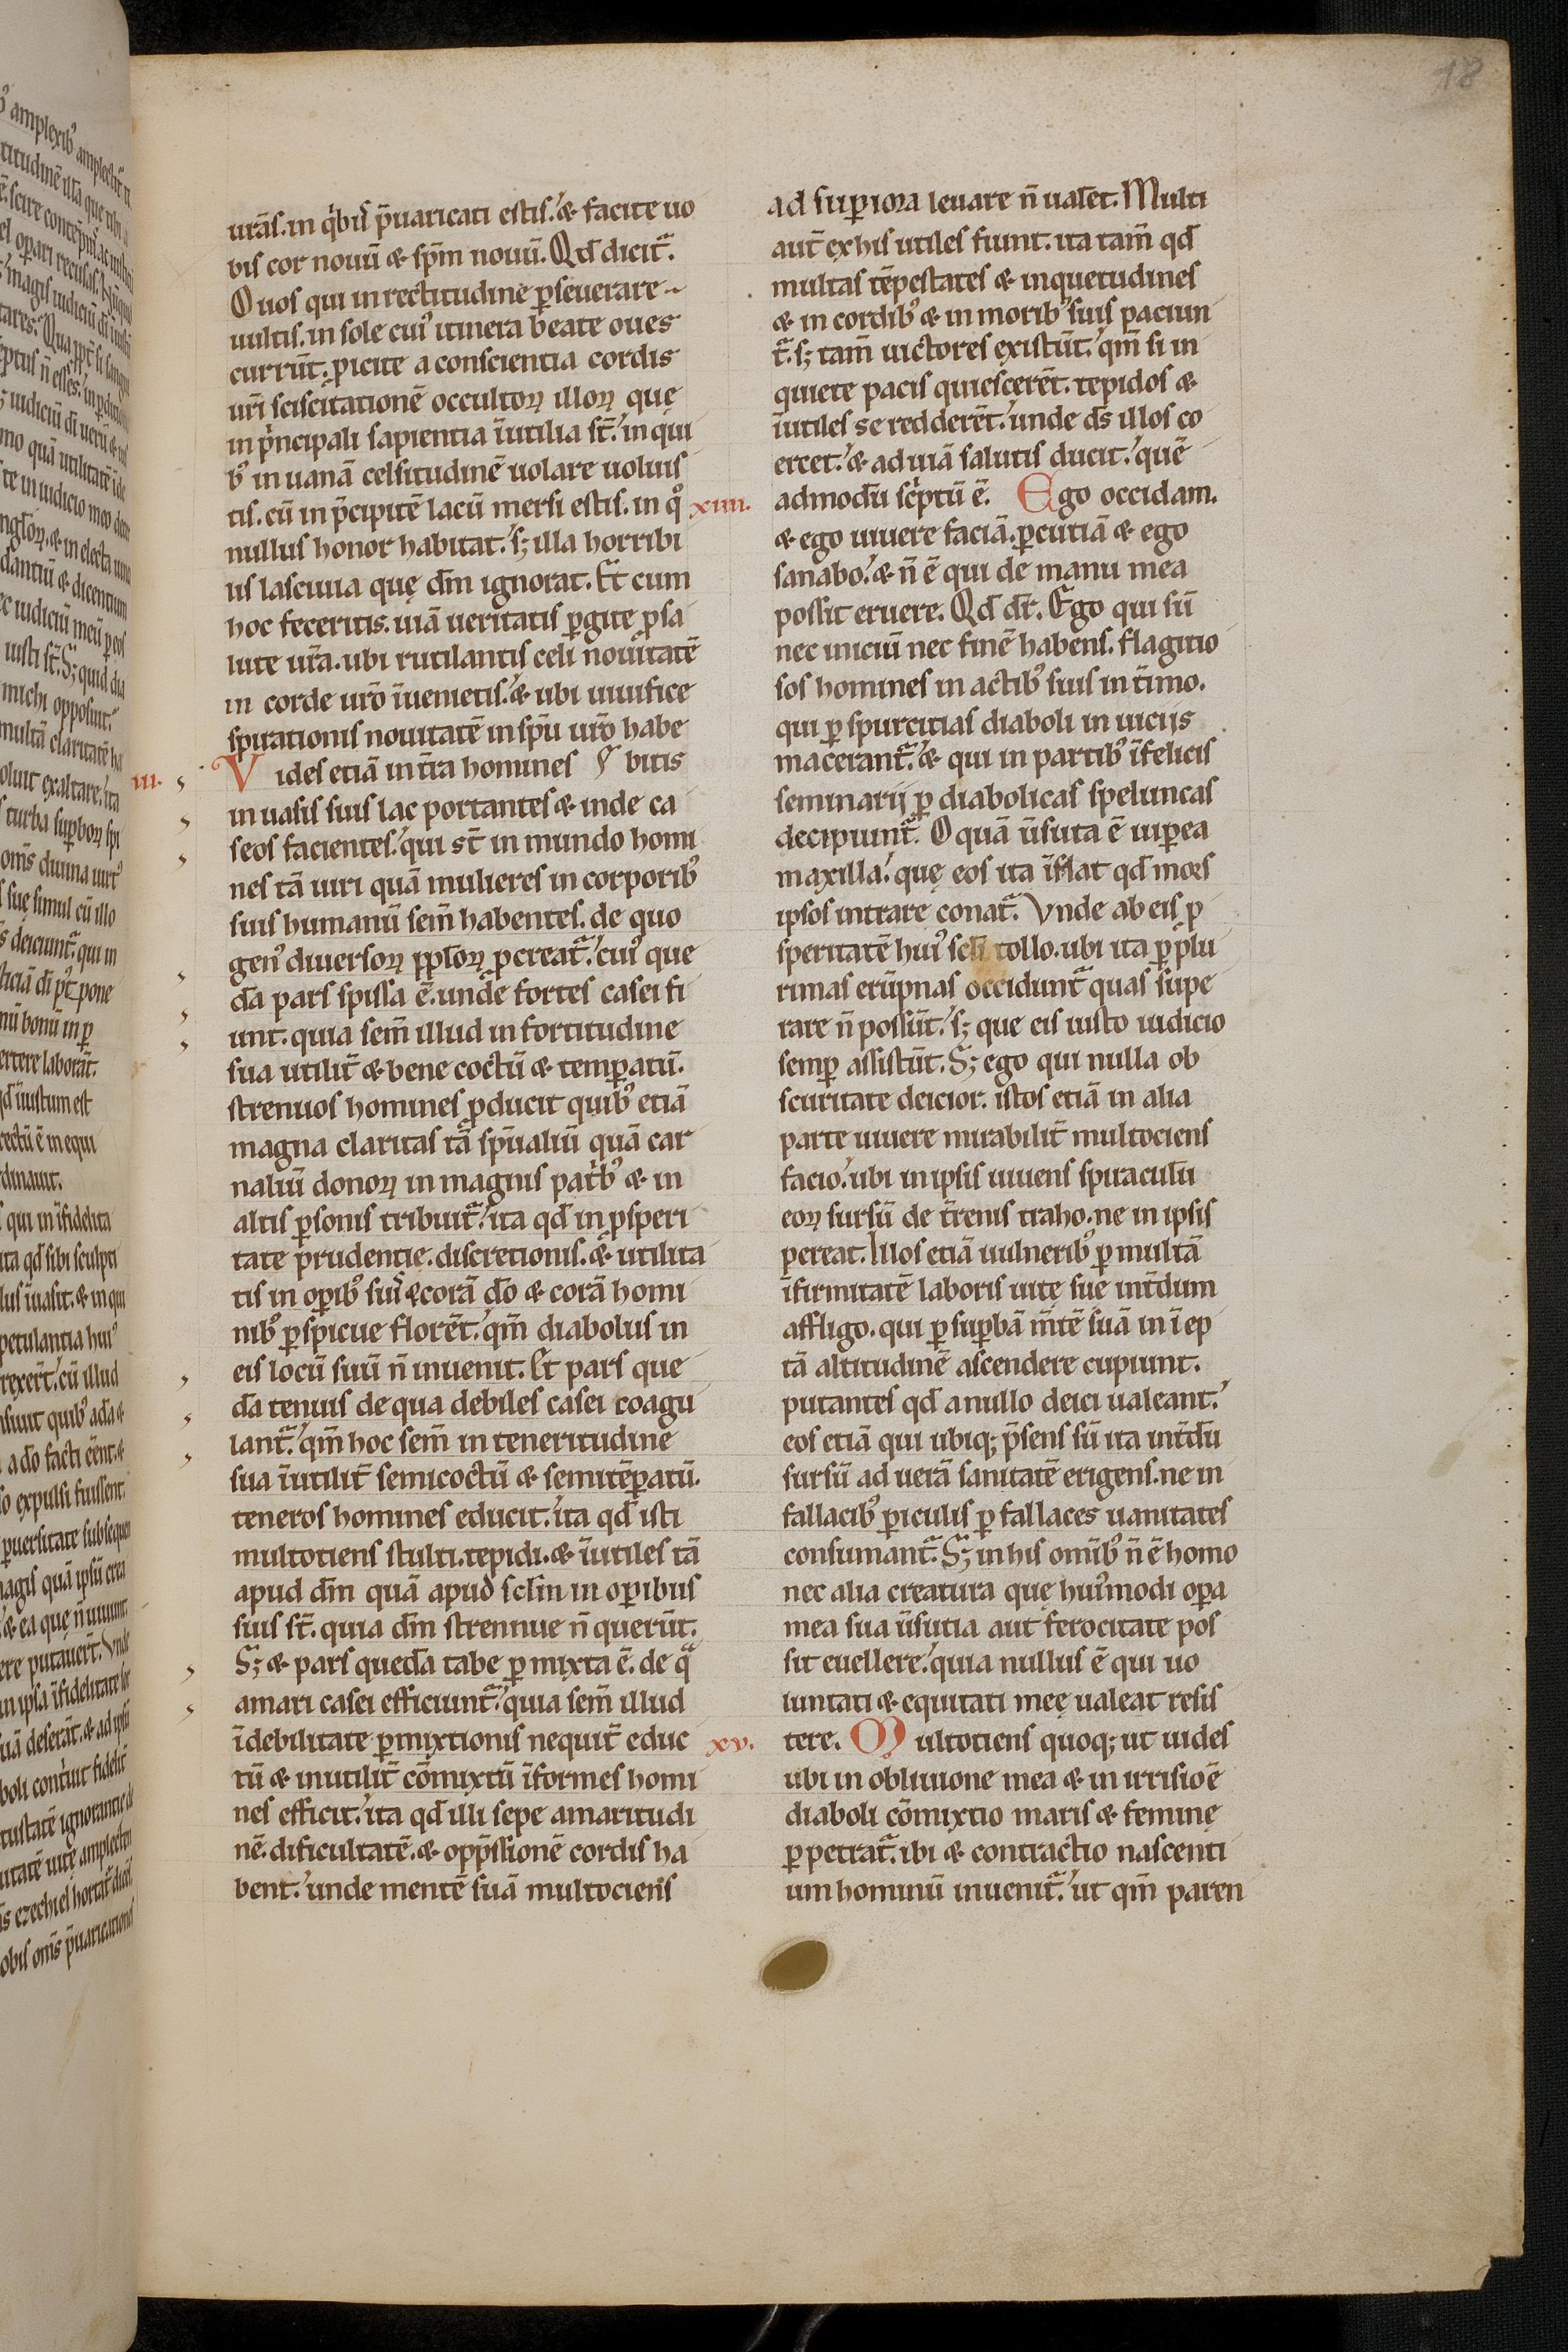 18
urās. in qͥbuſ p̄uaricati eſtiſ.ʼ & facite uo
bis cor nouū & sp̄m nouū. Qd̄ dicitᷓ.
O uos qui in rectitudine ꝑſeuerare
uultis. in ſole cuiꝰ itinera beate oues
currūt. ꝓicite a conſcientia cordis
urī ſciſcitationē occultoꝝ illoꝝ quę
in pͥncipali ſapientia īutilia ſt̄.ʼ in qui
bꝰ in uanā celſitudinē uolare uoluiſ
tis. cū in p̄cipitē lacū merſi eſtis. in qͦ
nullus honor habitat.ʼ ſꝫ illa horribi
lis laſciuia quę dm̄ ignorat. Et cum
hoc feceritis. uiā ueritatis ꝑgite ꝓ ſa
lute ur̄a. ubi rutilantiſ celi nouitatē
in corde ur̄o īuenietiſ.ʼ & ubi uiuifice
ſpirationis nouitatē in ſp̄u ur̄o habe
iii. Vides etiā in t̄ra homines bitis
in uaſis ſuis lac portantes & inde ca
ſeos facientes.ʼ qui st̄ in mundo homi
nes tā uiri quā mulieres in corporibꝰ
ſuis humanū ſem̄ habentes. de quo
genꝰ diuerſoꝝ pp̄loꝝ ꝓcreatᷓ.ʼ cuiꝰ que
dā pars ſpiſſa ē. unde fortes caſei fi
unt. quia ſem̄ illud in fortitudine
ſua utilit̄ & bene coctū & temꝑatū.
ſtrenuos homines ꝓducit quibꝰ etiā
magna claritas tā ſp̄ualiū quā car
naliū donoꝝ in magnis pat̄bꝰ & in
altis ꝑſonis tribuitᷓ.ʼ ita qd̄ in ꝓſperi
tate prudentię. diſcretioniſ. & utilita
tis in oꝑibꝰ ſuiſ & corā do̅ & corā homi
nibꝰ ꝑſpicue florēt.ʼ qm̄ diabolus in
eis locū ſuū n̄ inuenit. Et pars que
dā tenuis de qua debiles caſei coagu
lantᷓ.ʼ qm̄ hoc ſem̄ in teneritudine
ſua īutilit̄ ſemicoctū & ſemitēꝑatū.
teneros homines educit.ʼ ita qd̄ iſti
multotiens ſtulti. tepidi. & īutiles tā
apud dm̄ quā apud ſclm̄ in oꝑibus
ſuis ſt̄. quia dm̄ ſtrennue n̄ querūt.
Sꝫ & pars quedā tabe ꝑmixta ē. de qᷓ
amari caſei efficiuntᷓ.ʼ quia ſem̄ illud
ī debilitate ꝑmixtionis nequit̄ educ
tū & inutilit̄ cōmixtū īformes homi
nes efficit.ʼ ita qd̄ illi ſepe amaritudi
nē. dificultatē. & opp̄ſſionē cordiſ ha
bent.ʼ unde mentē ſuā multociens
ad ſuꝑiora leuare n̄ ualēt. Multi
aut̄ ex his utiles fiunt. ita tam̄ qd̄
multas tēpeſtates & inquetudines
& in cordibꝰ & in moribꝰ ſuiſ paciun
tᷓ. ſꝫ tam̄ uictores exiſtūt.ʼ qm̄ ſi in
quiete pacis quieſcerēt. tepidos &
īutiles se redderēt.ʼ unde ds̄ illos co
ercet.ʼ & ad uiā ſalutis ducit.ʼ quē
xiiii. admodū ſcͥptū ē. Ego occidam.
& ego uiuere faciā. ꝑcutiā & ego
ſanabo.ʼ & n̄ ē qui de manu mea
poſſit eruere. Qd̄ dr̄. Ego qui ſū
nec iniciū nec finē habens. flagitio
ſos homines in actibꝰ ſuis int̄imo.
qui ꝑ ſpurcitias diaboli in uiciis
macerantᷓ.ʼ & qui in partibꝰ īfelicis
ſeminarij ꝑ diabolicas ſpeluncas
decipiuntᷓ. O quā ūſuta ē uiꝑea
maxilla.ʼ quę eos ita īflat qd̄ mors
ipſos intrare conatᷓ. Vnde ab eiſ ꝓ
ſperitatē huiꝰ ſcl̄i tollo. ubi ita ꝑ plu
rimas erūpnas occiduntᷓ quas ſupe
rare n̄ poſſūt.ʼ ſꝫ que eis iuſto iudicio
ſemꝑ aſſiſtūt. Sꝫ ego qui nulla ob
ſcuritate deicior. iſtos etiā in alia
parte uiuere mirabilit̄ multociens
facio.ʼ ubi in ipſis uiuens ſpiraculū
eoꝝ ſurſū de t̄renis traho. ne in ipſiſ
pereat. Illos etiā uulneribꝰ ꝑ multā
īfirmitatē laboris uitę ſue int̄dum
affligo. qui ꝑ ſuꝑbā m̄tē ſuā in ī ep
tā altitudinē aſcendere cupiunt.
putantes qd̄ a nullo deici ualeant.ʼ
eos etiā qui ubiqꝫ p̄ſens ſū ita int̄dū
ſurſū ad uerā ſanitatē erigens. ne in
fallacibꝰ ꝑiculis ꝑ fallaces uanitates
conſumantᷓ. Sꝫ in his omībꝰ n̄ ē homo
nec alia creatura quę huiꝰmodi oꝑa
mea ſua ūſutia aut ferocitate poſ
ſit euellere.ʼ quia nullus ē qui uo
luntati & equitati meę ualeat reſiſ
xv. tere. Multotiens quoqꝫ ut uides
ubi in obliuione mea & in irriſioē
diaboli cōmixtio maris & feminę
ꝑpetratᷓ. ibi & contractio naſcenti
um hominū inuenitᷓ.ʼ ut qm̄ paren